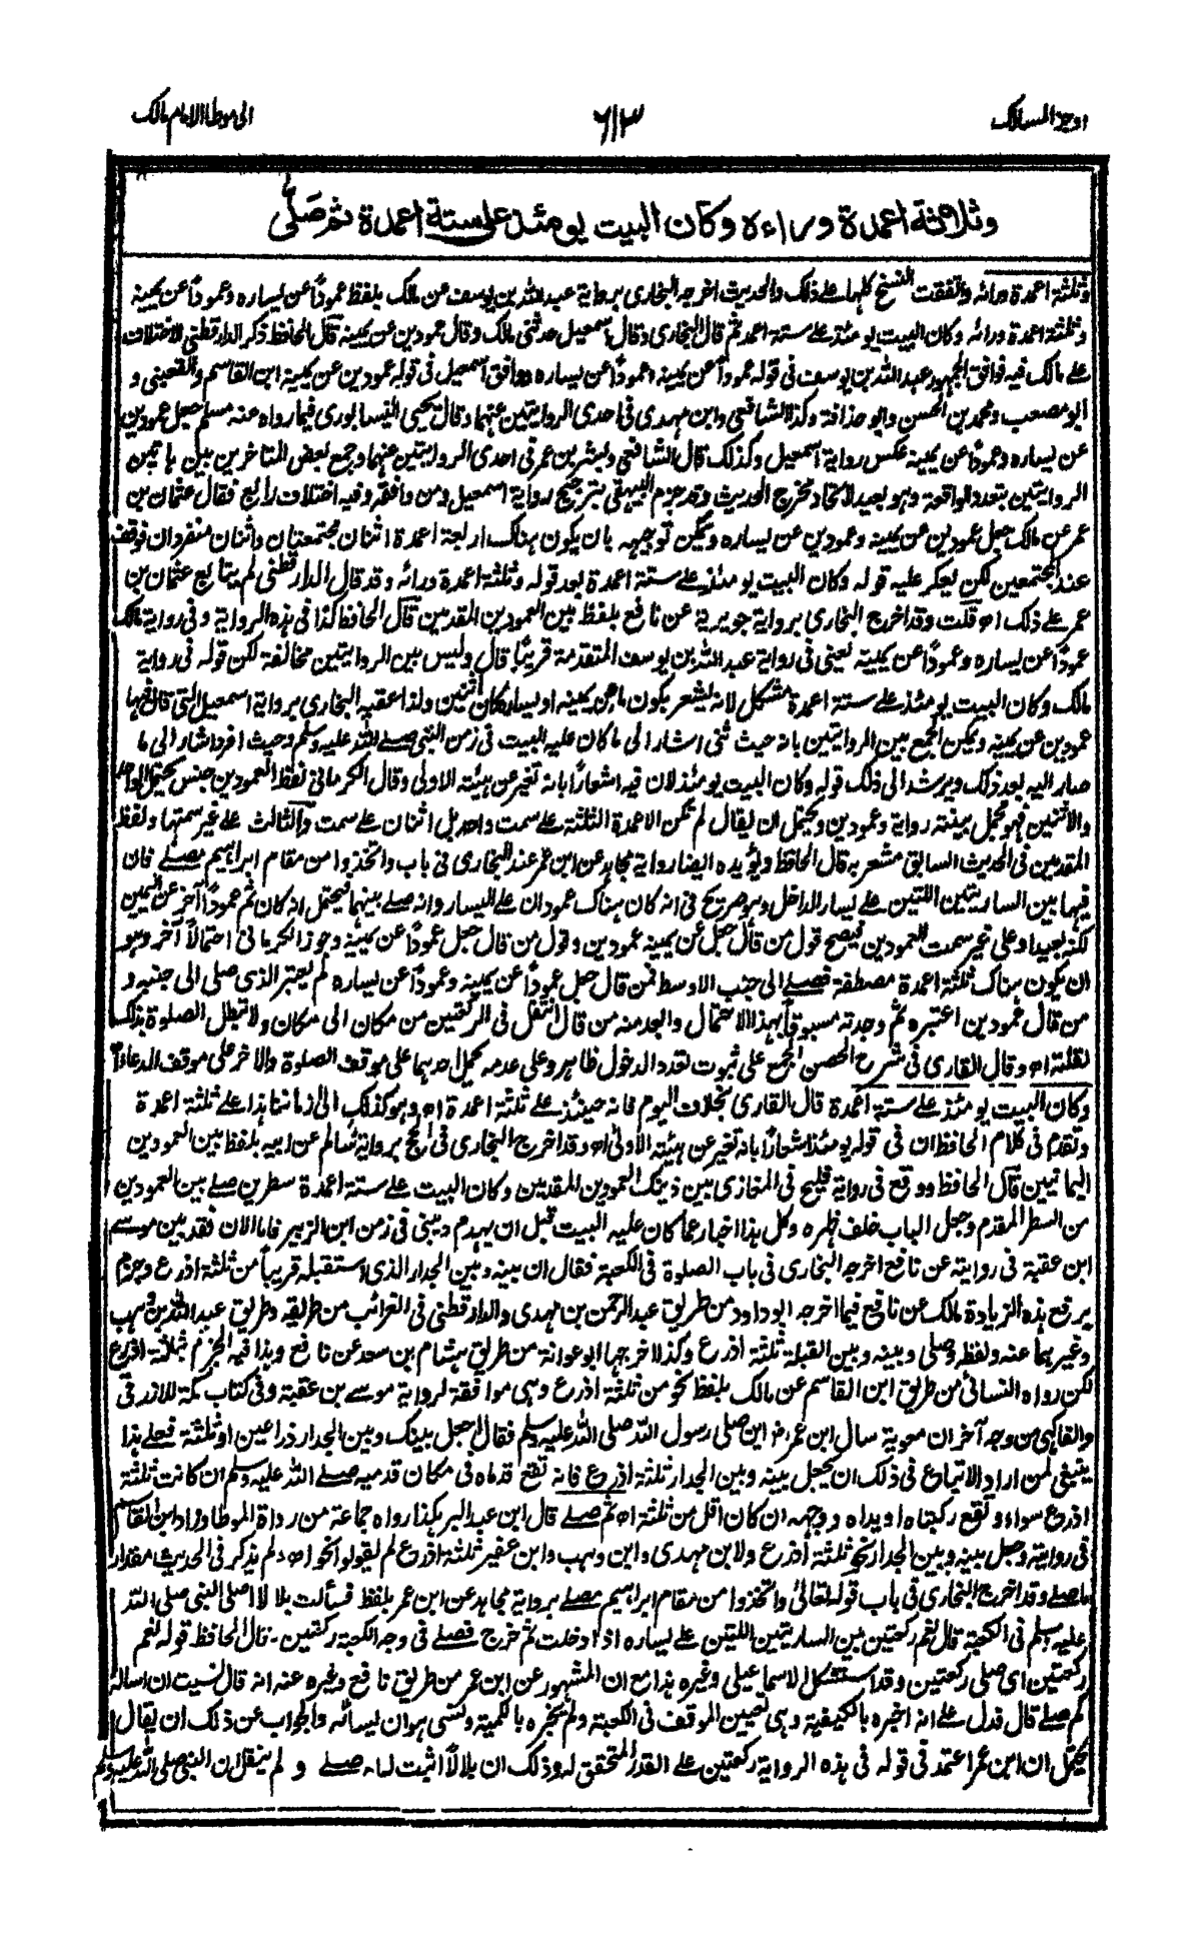 اوجز المسالك
٦١٣
الى موطا الامام مالك
وثلاثة اعمدة وراءه وكان البيت يومئذ على ستة اعمدة ثم صلى
وثلثة اعمدة ورائه واتفقت النسخ كلها على ذلك والحديث اخرجه البخارى برواية عبد الله بن يوسف عن مالك بلفظ عموداً عن يساره وعموداً عن يمينه
وثلثة اعمدة ورائه وكان البيت يومئذ على ستة اعمدة ثم قال البخارى وقال اسمعيل حدثنى مالك وقال عمودين عن يمينه قال الحافظ ذكر الدارقطنى الاختلاف
على مالك فيه فوافق الجمهور عبد الله بن يوسف فى قوله عموداً عن يمينه وعموداً عن يساره ووافق اسمعيل فى قوله عمودين عن يمينه ابن القاسم والقعنبى و
ابو مصعب ومحمد بن الحسن وابو حذافة وكذا الشافعى وابن مهدى فى احدى الروايتين عنهما وقال يحيى النيسابورى فيما رواه عنه مسلم جعل عمودين
عن يساره وعموداً عن يمينه عكس رواية اسمعيل وكذلك قال الشافعى وبشر بن عمر فى احدى الروايتين عنهما وجمع بعض المتاخرين بين هاتين
الروايتين بتعدد الواقعة وهو بعيد لاتحاد مخرج الحديث وقد جزم البيهقى بترجيح رواية اسمعيل ومن وافقه وفيه اختلاف رابع فقال عثمان بن
عمر عن مالك جعل عمودين عن يمينه وعمودين عن يساره ويمكن توجيهه بان يكون هناك اربعة اعمدة اثنان مجتمعتان واثنان منفردان فوقف
عند المجتمعين لكن يعكر عليه قوله وكان البيت يومئذ على ستة اعمدة بعد قوله وثلثة اعمدة ورائه وقد قال الدارقطنى لم يتابع عثمان بن
عمر على ذلك اه قلت وقد اخرج البخارى برواية جويرية عن نافع بلفظ بين العمودين المقدمين قال الحافظ كذا فى هذه الرواية وفى رواية مالك
عموداً عن يساره وعموداً عن يمينه يعنى فى رواية عبد الله بن يوسف المتقدمة قريباً قال وليس بين الروايتين مخالفة لكن قوله فى رواية
مالك وكان البيت يومئذ على ستة اعمدة مشكل لانه يشعر بكون ما عن يمينه او يساره كان اثنين ولذا اعقبه البخارى برواية اسمعيل التى قال فيها
عمودين عن يمينه ويمكن الجمع بين الروايتين بانه حيث ثنى اشار الى ما كان عليه البيت فى زمن النبى صلى الله عليه وسلم وحيث افرد اشار الى ما
صار اليه بعد ذلك ويرشد الى ذلك قوله وكان البيت يومئذ لان فيه اشعاراً بانه تغير عن هيئته الاولى وقال الكرمانى لفظ العمودين جنس يحتمل الواحد
والاثنين فهو مجمل بينته رواية وعمودين ويحتمل ان يقال لم تكن الاعمدة الثلثة على سمت واحد بل اثنان على سمت والثالث على غير سمتها ولفظ
المقدمين فى الحديث السابق مشعر به قال الحافظ ويؤيده ايضا رواية مجاهد عن ابن عمر عند البخارى فى باب واتخذوا من مقام ابراهيم مصلى فان
فيها بين الساريتين اللتين على يسار الداخل وهو صريح فى انه كان هناك عمودان على اليسار وانه صلى بينهما فيحتمل انه كان ثم عموداً آخر عن اليمين
لكنه بعيد او على غير سمت العمودين فيصح قول من قال جعل عن يمينه عمودين وقول من قال جعل عموداً عن يمينه وجوز الكرمانى احتمالاً آخر وهو
ان يكون هناك ثلثة اعمدة مصطفة فصلى الى جنب الاوسط فمن قال جعل عموداً عن يمينه وعموداً عن يساره لم يعتبر الذى صلى الى جنبه و
من قال عمودين اعتبره ثم وجدته مسبوقاً بهذا الاحتمال وابعد منه من قال انتقل فى الركعتين من مكان الى مكان ولا تبطل الصلوة بذلك
لقلته اه وقال القارى فى شرح الحصن الجمع على ثبوت تعدد الدخول ظاهر وعلى عدمه يحمل احدهما على موقف الصلوة والاخر على موقف الدعاء
وكان البيت يومئذ على ستة اعمدة قال القارى بخلاف اليوم فانه حينئذ على ثلثة اعمدة اه وهو كذلك الى زماننا هذا على ثلثة اعمدة
وتقدم فى كلام الحافظ ان فى قوله يومئذ اشعاراً بانه تغير عن هيئته الاولى اه وقد اخرج البخارى فى الحج برواية سالم عن ابيه بلفظ بين العمودين
اليمانيين قال الحافظ ووقع فى رواية فليح فى المغازى بين ذينك العمودين المقدمين وكان البيت على ستة اعمدة سطرين صلى بين العمودين
من السطر المقدم وجعل الباب خلف ظهره وكل هذا اخبار عما كان عليه البيت قبل ان يهدم ويبنى فى زمن ابن الزبير فاما الان فقد بين موسى
ابن عقبة فى روايته عن نافع اخرجه البخارى فى باب الصلوة فى الكعبة فقال ان بينه وبين الجدار الذى استقبله قريباً من ثلثة اذرع وجزم
برفع هذه الزيادة مالك عن نافع فيما اخرجه ابو داود من طريق عبد الرحمن بن مهدى والدارقطنى فى الغرائب من طريقه وطريق عبد الله بن وهب
وغيرهما عنه ولفظه وصلى وبينه وبين القبلة ثلثة اذرع وكذا اخرجها ابو عوانة من طريق هشام بن سعد عن نافع وهذا فيه الجزم بثلاثة اذرع
لكن رواه النسائى من طريق ابن القاسم عن مالك بلفظ نحو من ثلثة اذرع وهى موافقة لرواية موسى بن عقبة وفى كتاب مكة للازرقى
والفاكهى من وجه آخر ان معوية سال ابن عمر رضـ اين صلى رسول الله صلى الله عليه وسلم فقال اجعل بينك وبين الجدار ذراعين او ثلثة فعلى هذا
ينبغى لمن اراد الاتباع فى ذلك ان يجعل بينه وبين الجدار ثلثة اذرع فانه تقع قدماه فى مكان قدميه صلى الله عليه وسلم ان كانت ثلثة
اذرع سواء وتقع ركبتاه او يداه ووجهه ان كان اقل من ثلثة اه ثم صلى قال ابن عبد البر هكذا رواه جماعة من رواة الموطا وزاد ابن القاسم
فى روايته وجعل بينه وبين الجدار نحو ثلثة اذرع ولابن مهدى وابن وهب وابن عفير ثلثة اذرع لم يقولوا نحو اه ولم يذكر فى الحديث مقدار
ما صلى وقد اخرج البخارى فى باب قوله تعالى واتخذوا من مقام ابراهيم مصلى برواية مجاهد عن ابن عمر بلفظ فسألت بلالا اصلى النبى صلى الله
عليه وسلم فى الكعبة قال نعم ركعتين بين الساريتين اللتين على يساره اذا دخلت ثم خرج فصلى فى وجه الكعبة ركعتين - قال الحافظ قوله نعم
ركعتين اى صلى ركعتين وقد استشكل الاسماعيلى وغيره هذا مع ان المشهور عن ابن عمر من طريق نافع وغيره عنه انه قال نسيت ان اساله
كم صلى قال فدل على انه اخبره بالكيفية وهى تعيين الموقف فى الكعبة ولم يخبره بالكمية ونسى هو ان يساله والجواب عن ذلك ان يقال
يحتمل ان ابن عمر اعتمد فى قوله فى هذه الرواية ركعتين على القدر المتحقق له وذلك ان بلالاً اثبت له انه صلى و لم ينقل ان النبى صلى الله عليه وسلم